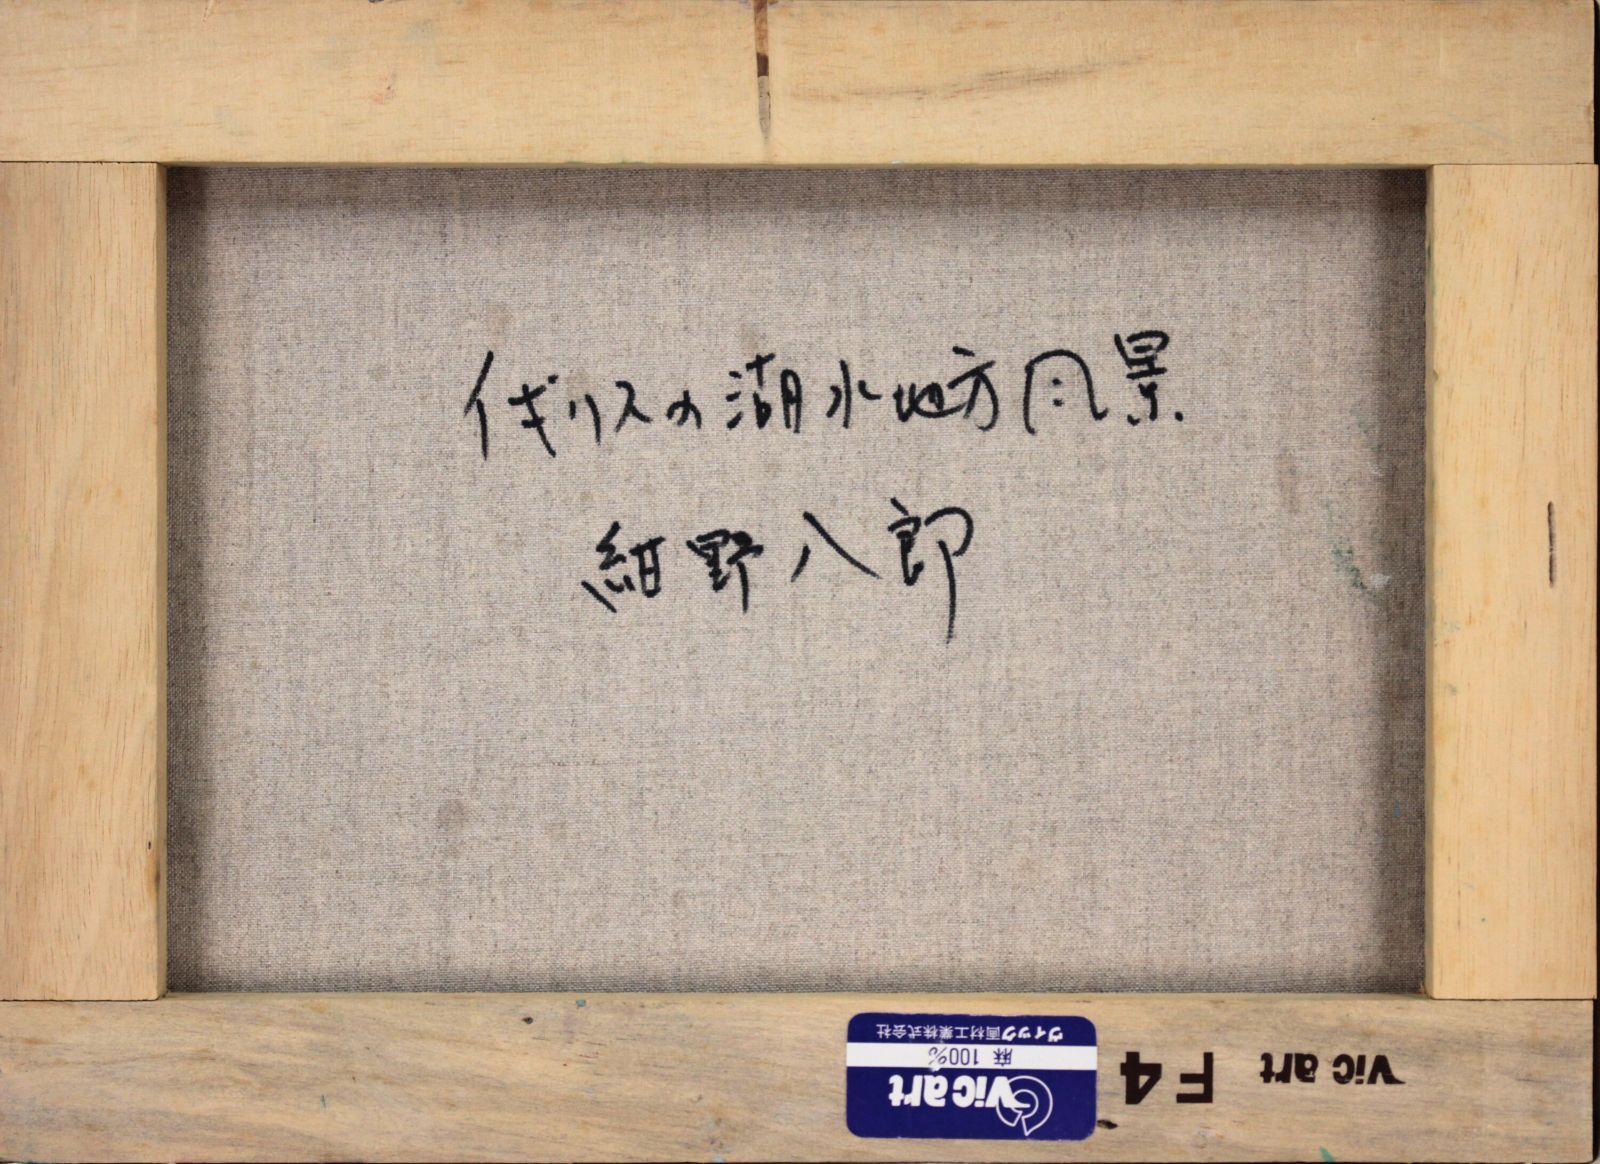 イギリスの湖水地方風景
紺野八郎
ヴィック画材工業株式会社
麻 100%
Vic art
F4
Vic art